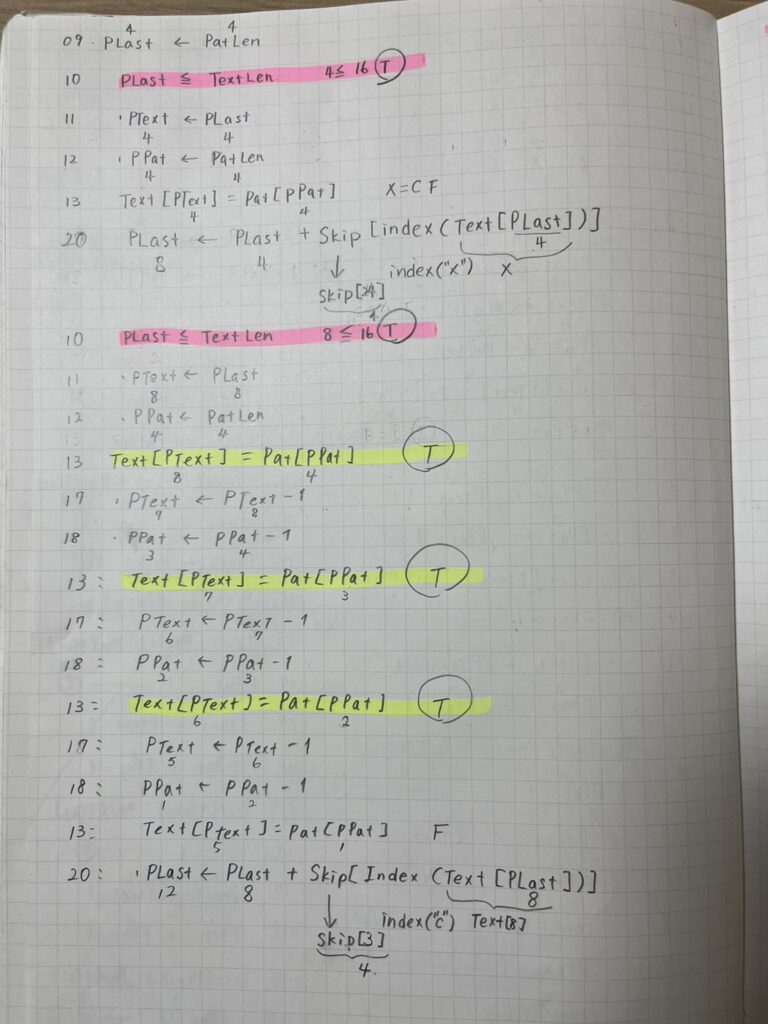 4 4
09・PLast ← PatLen
10 PLast ≦ TextLen 4≦ 16 T
11 ・PText ← PLast
4 4
12 ・PPat ← PatLen
4 4
13 Text[PText] = Pat[PPat] X=C F
4 4
20 PLast ← PLast + Skip[index(Text[PLast])]
8 4 4
index("x") X
Skip[24]
4
10 PLast ≦ TextLen 8 ≦ 16 T
11 ・PText ← PLast
8 8
12 ・PPat ← PatLen
4 4
13 Text[PText] = Pat[PPat] T
8 4
17 ・PText ← PText-1
7 8
18 ・PPat ← PPat-1
3 4
13: Text[PText] = Pat[PPat] T
7 3
17: PText ← PText-1
6 7
18: PPat ← PPat-1
2 3
13: Text[PText] = Pat[PPat] T
6 2
17: PText ← PText-1
5 6
18: PPat ← PPat-1
1 2
13: Text[PText] = Pat[PPat] F
5 1
20: ・PLast ← PLast + Skip[Index(Text[PLast])]
12 8 8
index("c") Text[8]
Skip[3]
4.